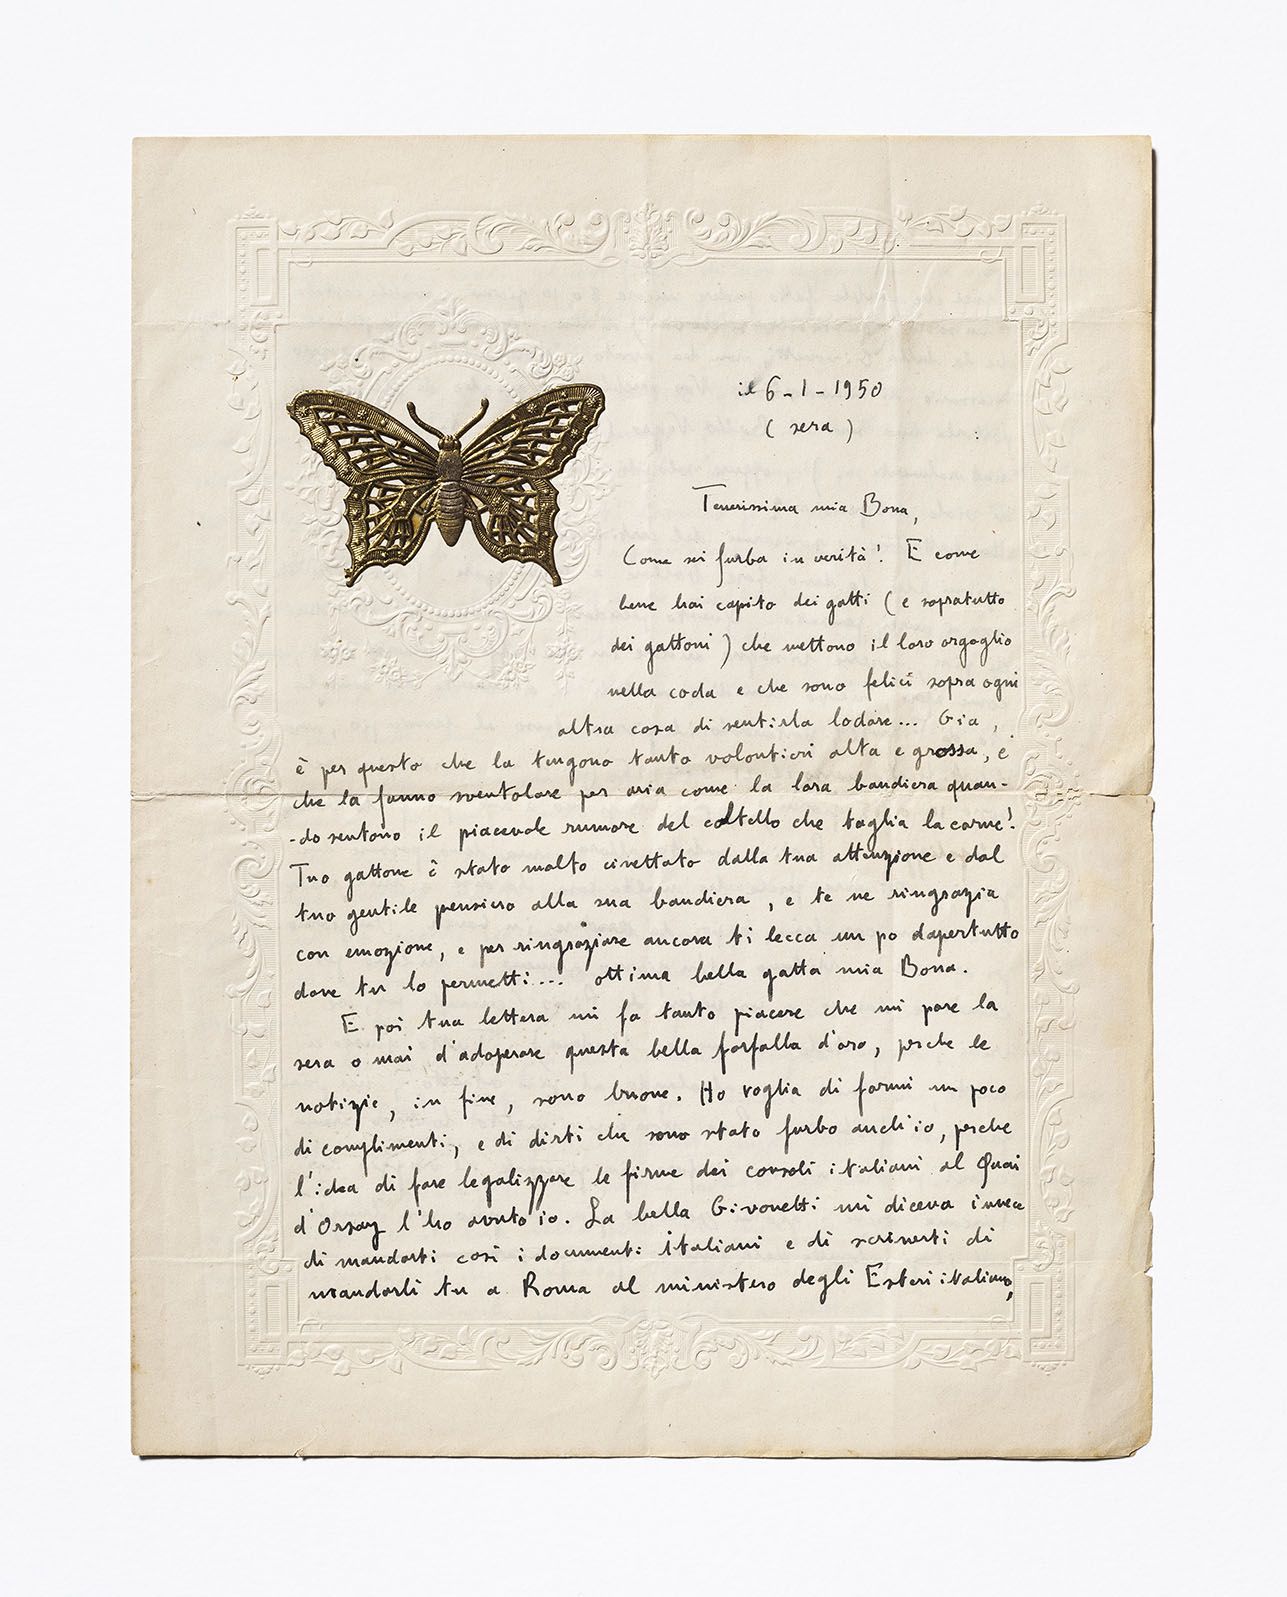 il 6-1-1950
(sera)
Tenerissima mia Bona,
Come sei furba in verità! E come
bene hai capito dei gatti (e sopratutto
dei gattoni) che mettono il loro orgoglio
nella coda e che sono felici sopra ogni
altra cosa di sentirla lodare... Gia,
è per questo che la tengono tanto volontieri alta e grossa, e
che la fanno sventolare per aria come la loro bandiera quan-
-do sentono il piacevole rumore del coltello che taglia la carne!
Tuo gattone è stato molto civettato dalla tua attenzione e dal
tuo gentile pensiero alla sua bandiera, e te ne ringrazia
con emozione, e per ringraziare ancora ti lecca un po dapertutto
dove tu lo permetti... ottima bella gatta mia Bona.
E poi tua lettera mi fa tanto piacere che mi pare la
sera o mai d'adoperare questa bella farfalla d'oro, perche le
notizie, in fine, sono buone. Ho voglia di farmi un poco
di complimenti, e di dirti che sono stato furbo anch'io, perche
l'idea di fare legalizzare le firme dei consoli italiani al Quai
d'Orsay l'ho avuto io. La bella Givonetti mi diceva invece
di mandarti così i documenti italiani e di scriverti di
mandarli tu a Roma al ministero degli Esteri italiano,